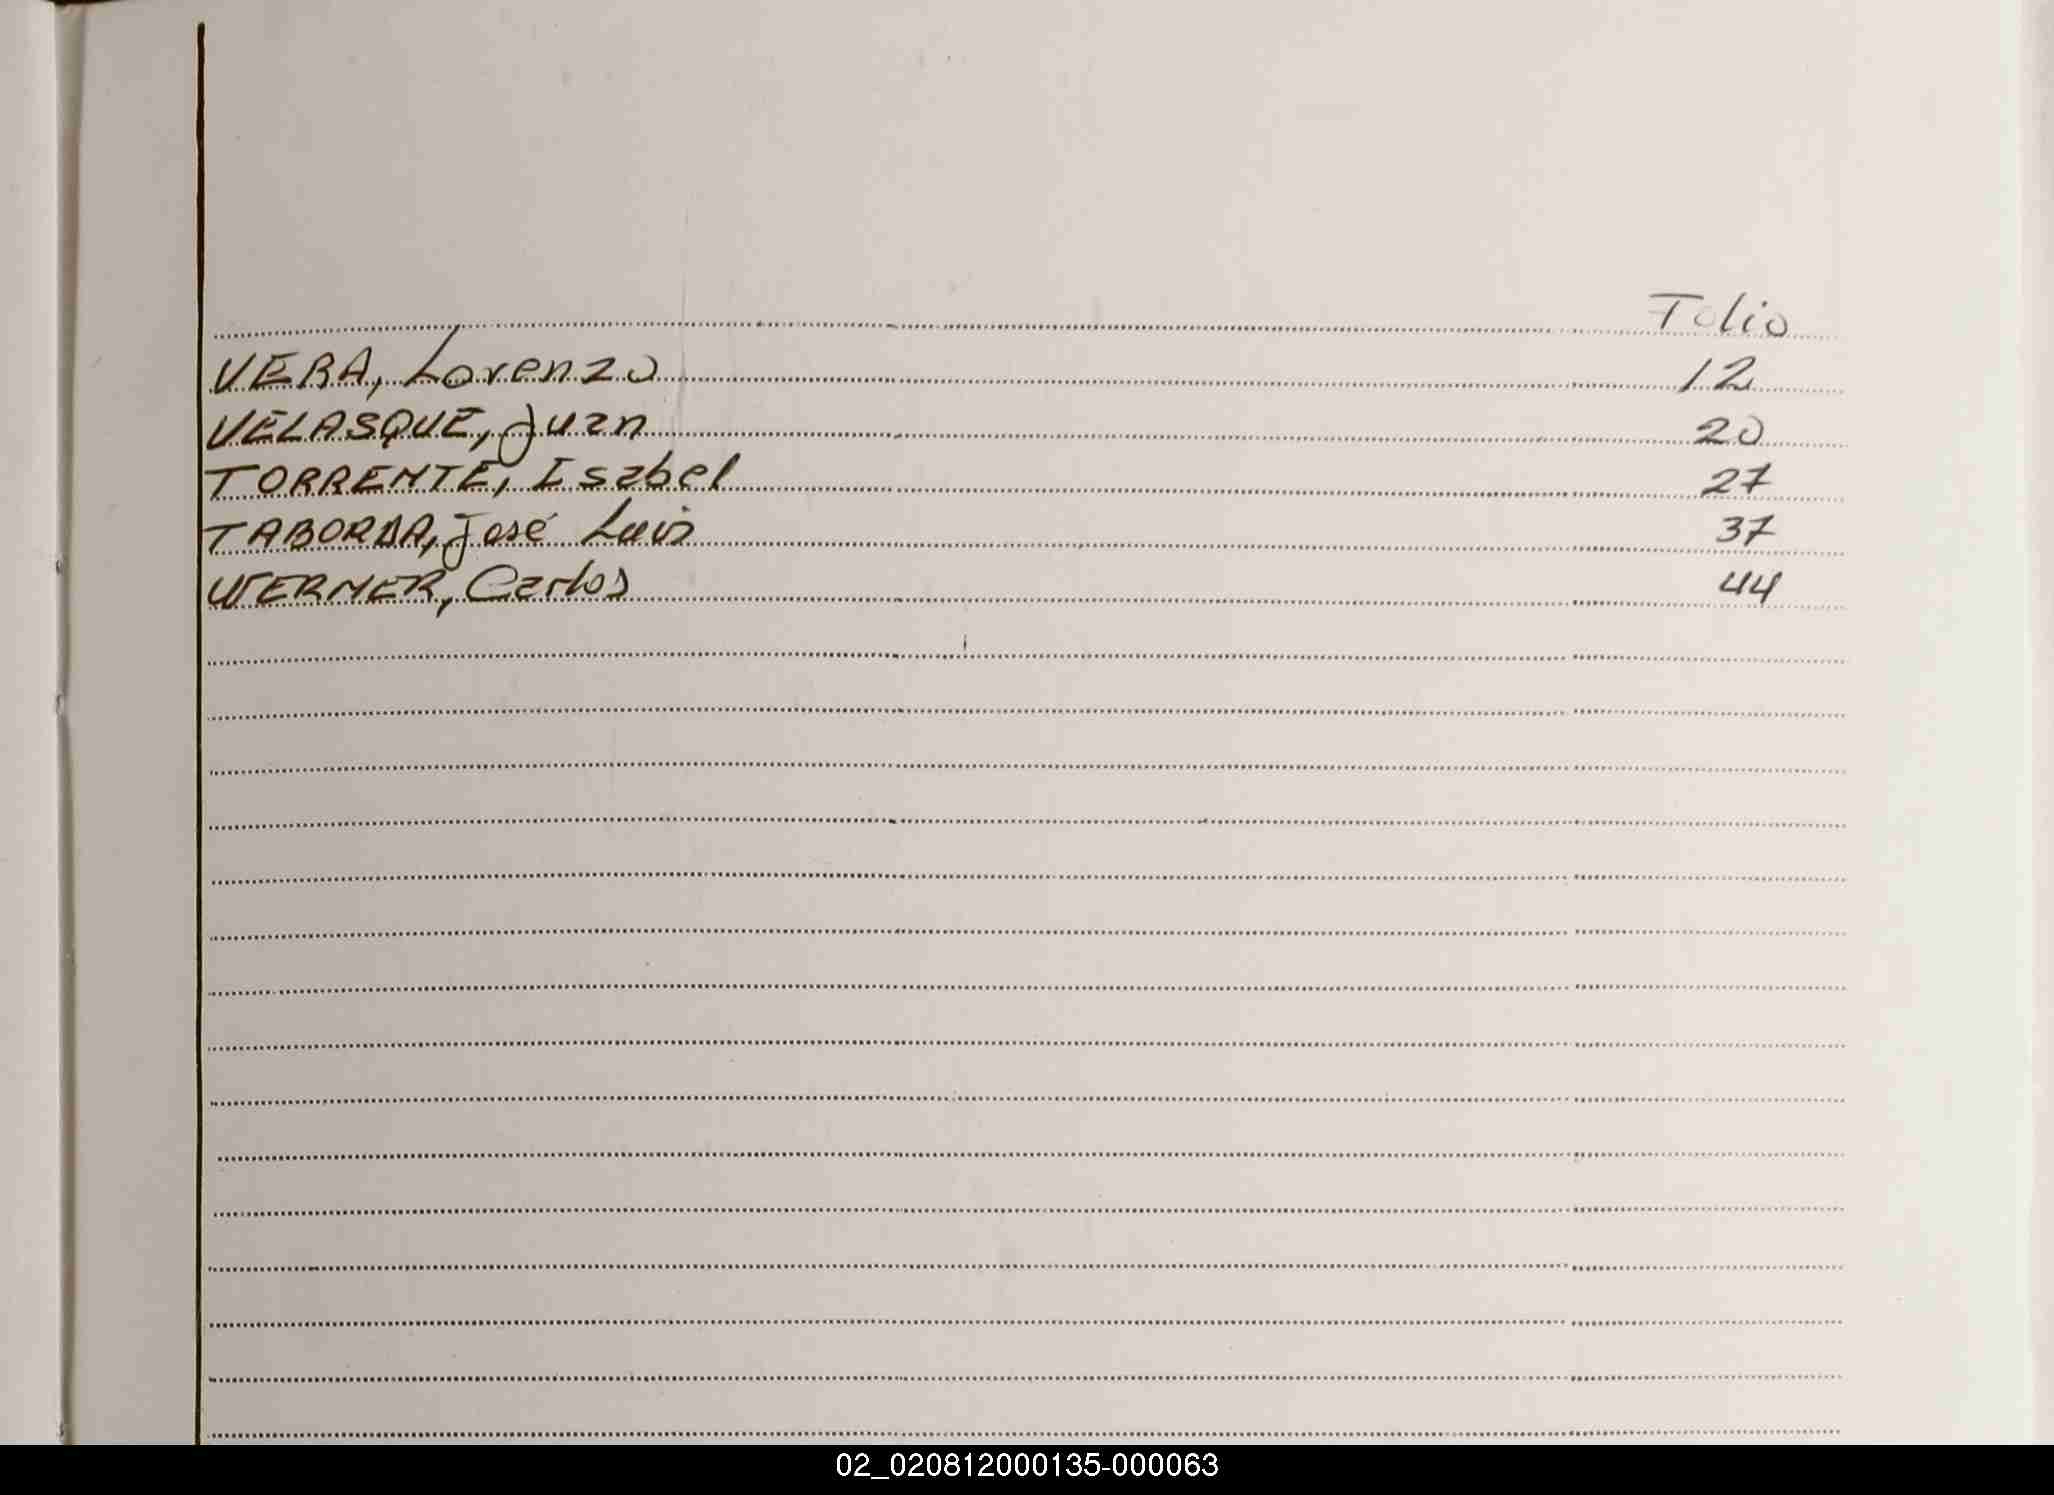 Folio
VERA, Lorenzo 12
VELASQUE, Juan 20
TORRENTE, Isabel 27
TABORDA, José Luis 37
WERNER, Carlos 44
02_020812000135-000063